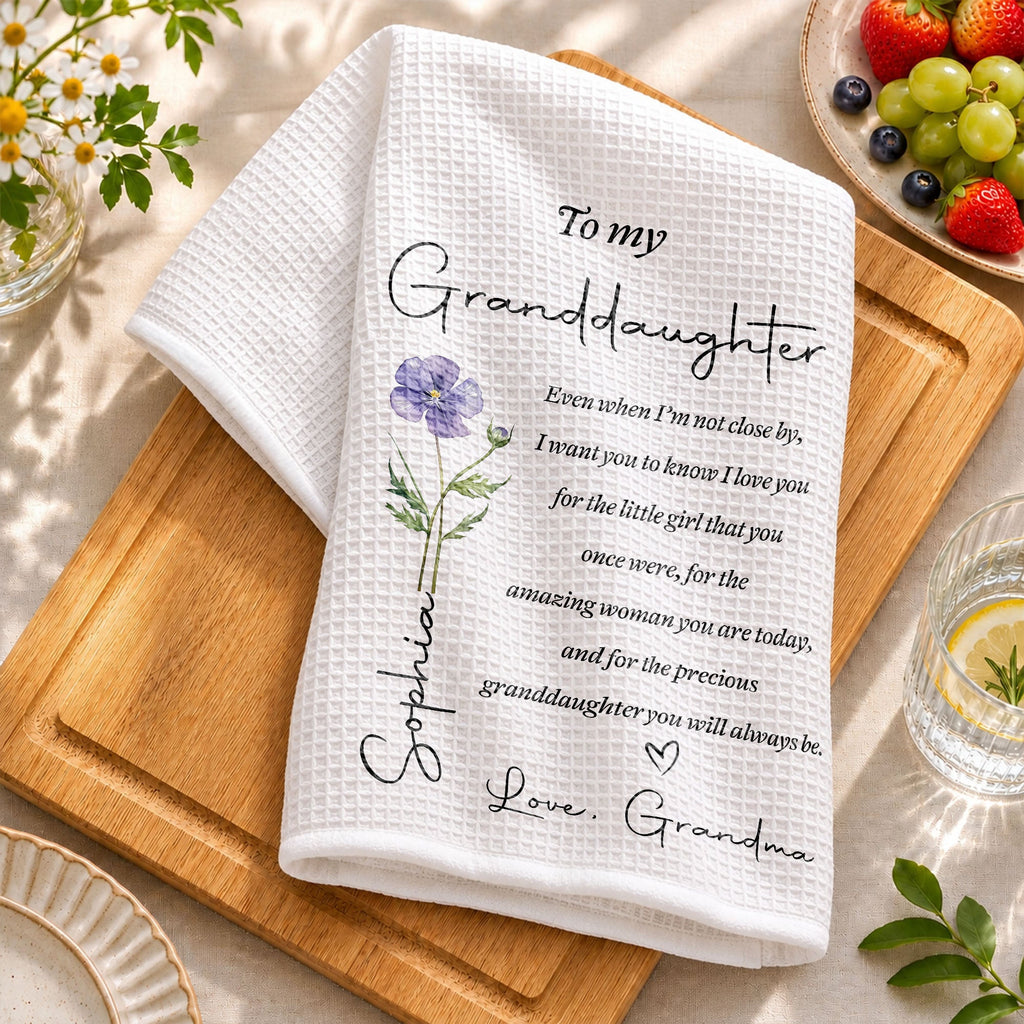 To my
Granddaughter
Even when I'm not close by,
I want you to know I love you
for the little girl that you
once were, for the
amazing woman you are today,
and for the precious
granddaughter you will always be.
Love, Grandma
Sophia